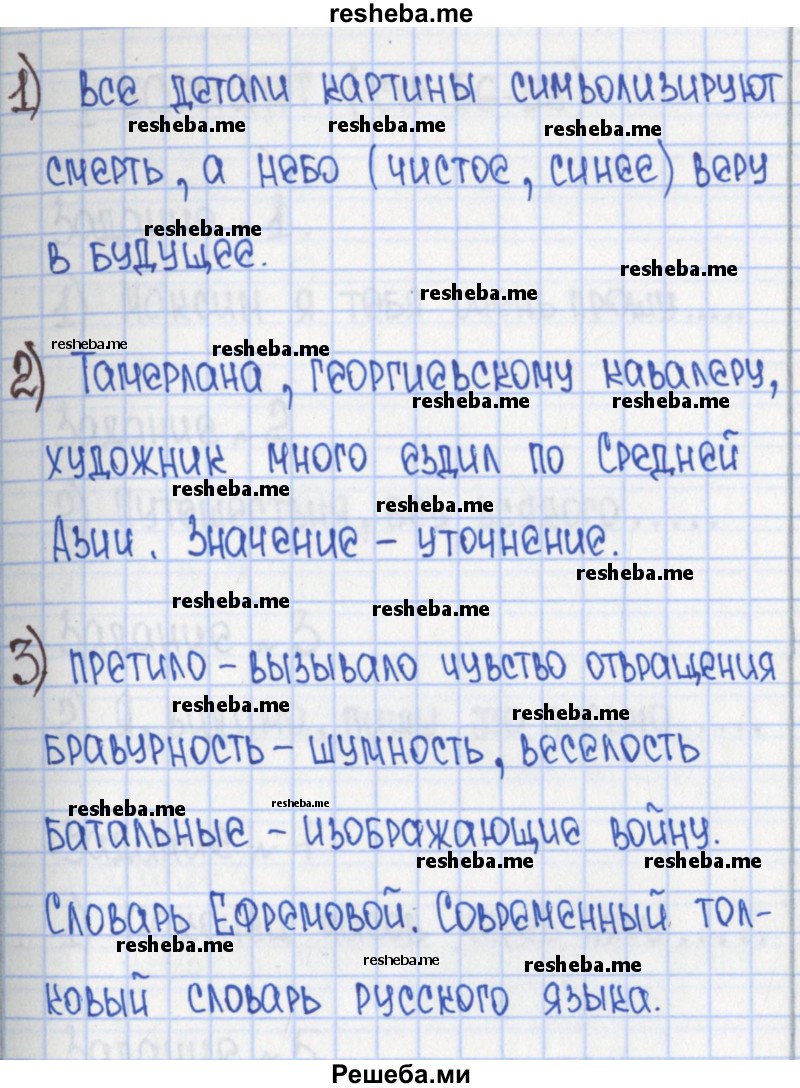 resheba.me
1) Все детали картины символизируют
resheba.me resheba.me resheba.me
смерть, а небо (чистое, синее) веру
resheba.me
в будущее.
resheba.me
resheba.me
resheba.me resheba.me
2) Тамерлана, георгиевскому кавалеру,
resheba.me resheba.me
художник много ездил по Средней
resheba.me resheba.me
Азии. Значение – уточнение.
resheba.me
resheba.me resheba.me
3) претило – вызывало чувство отвращения
resheba.me resheba.me
бравурность – шумность, веселость
resheba.me resheba.me
батальные – изображающие войну.
resheba.me resheba.me
Словарь Ефремовой. Современный тол-
resheba.me resheba.me resheba.me
ковый словарь русского языка.
Решеба.ми